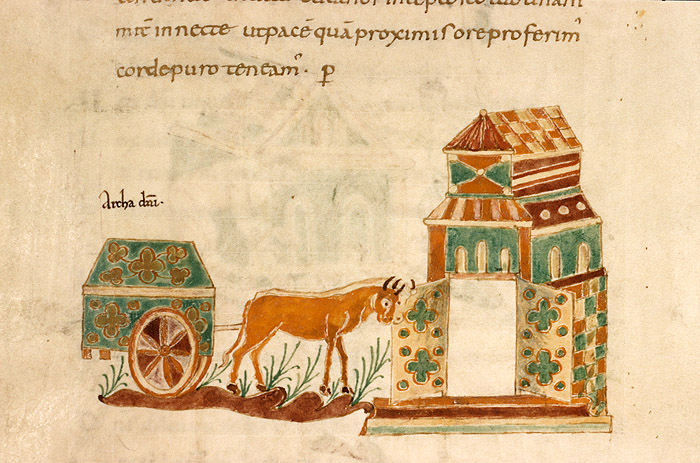 mtē innecte ut pacē quā proximis ore proferim'
corde puro teneam'. ꝑ
Archa dn̄i.